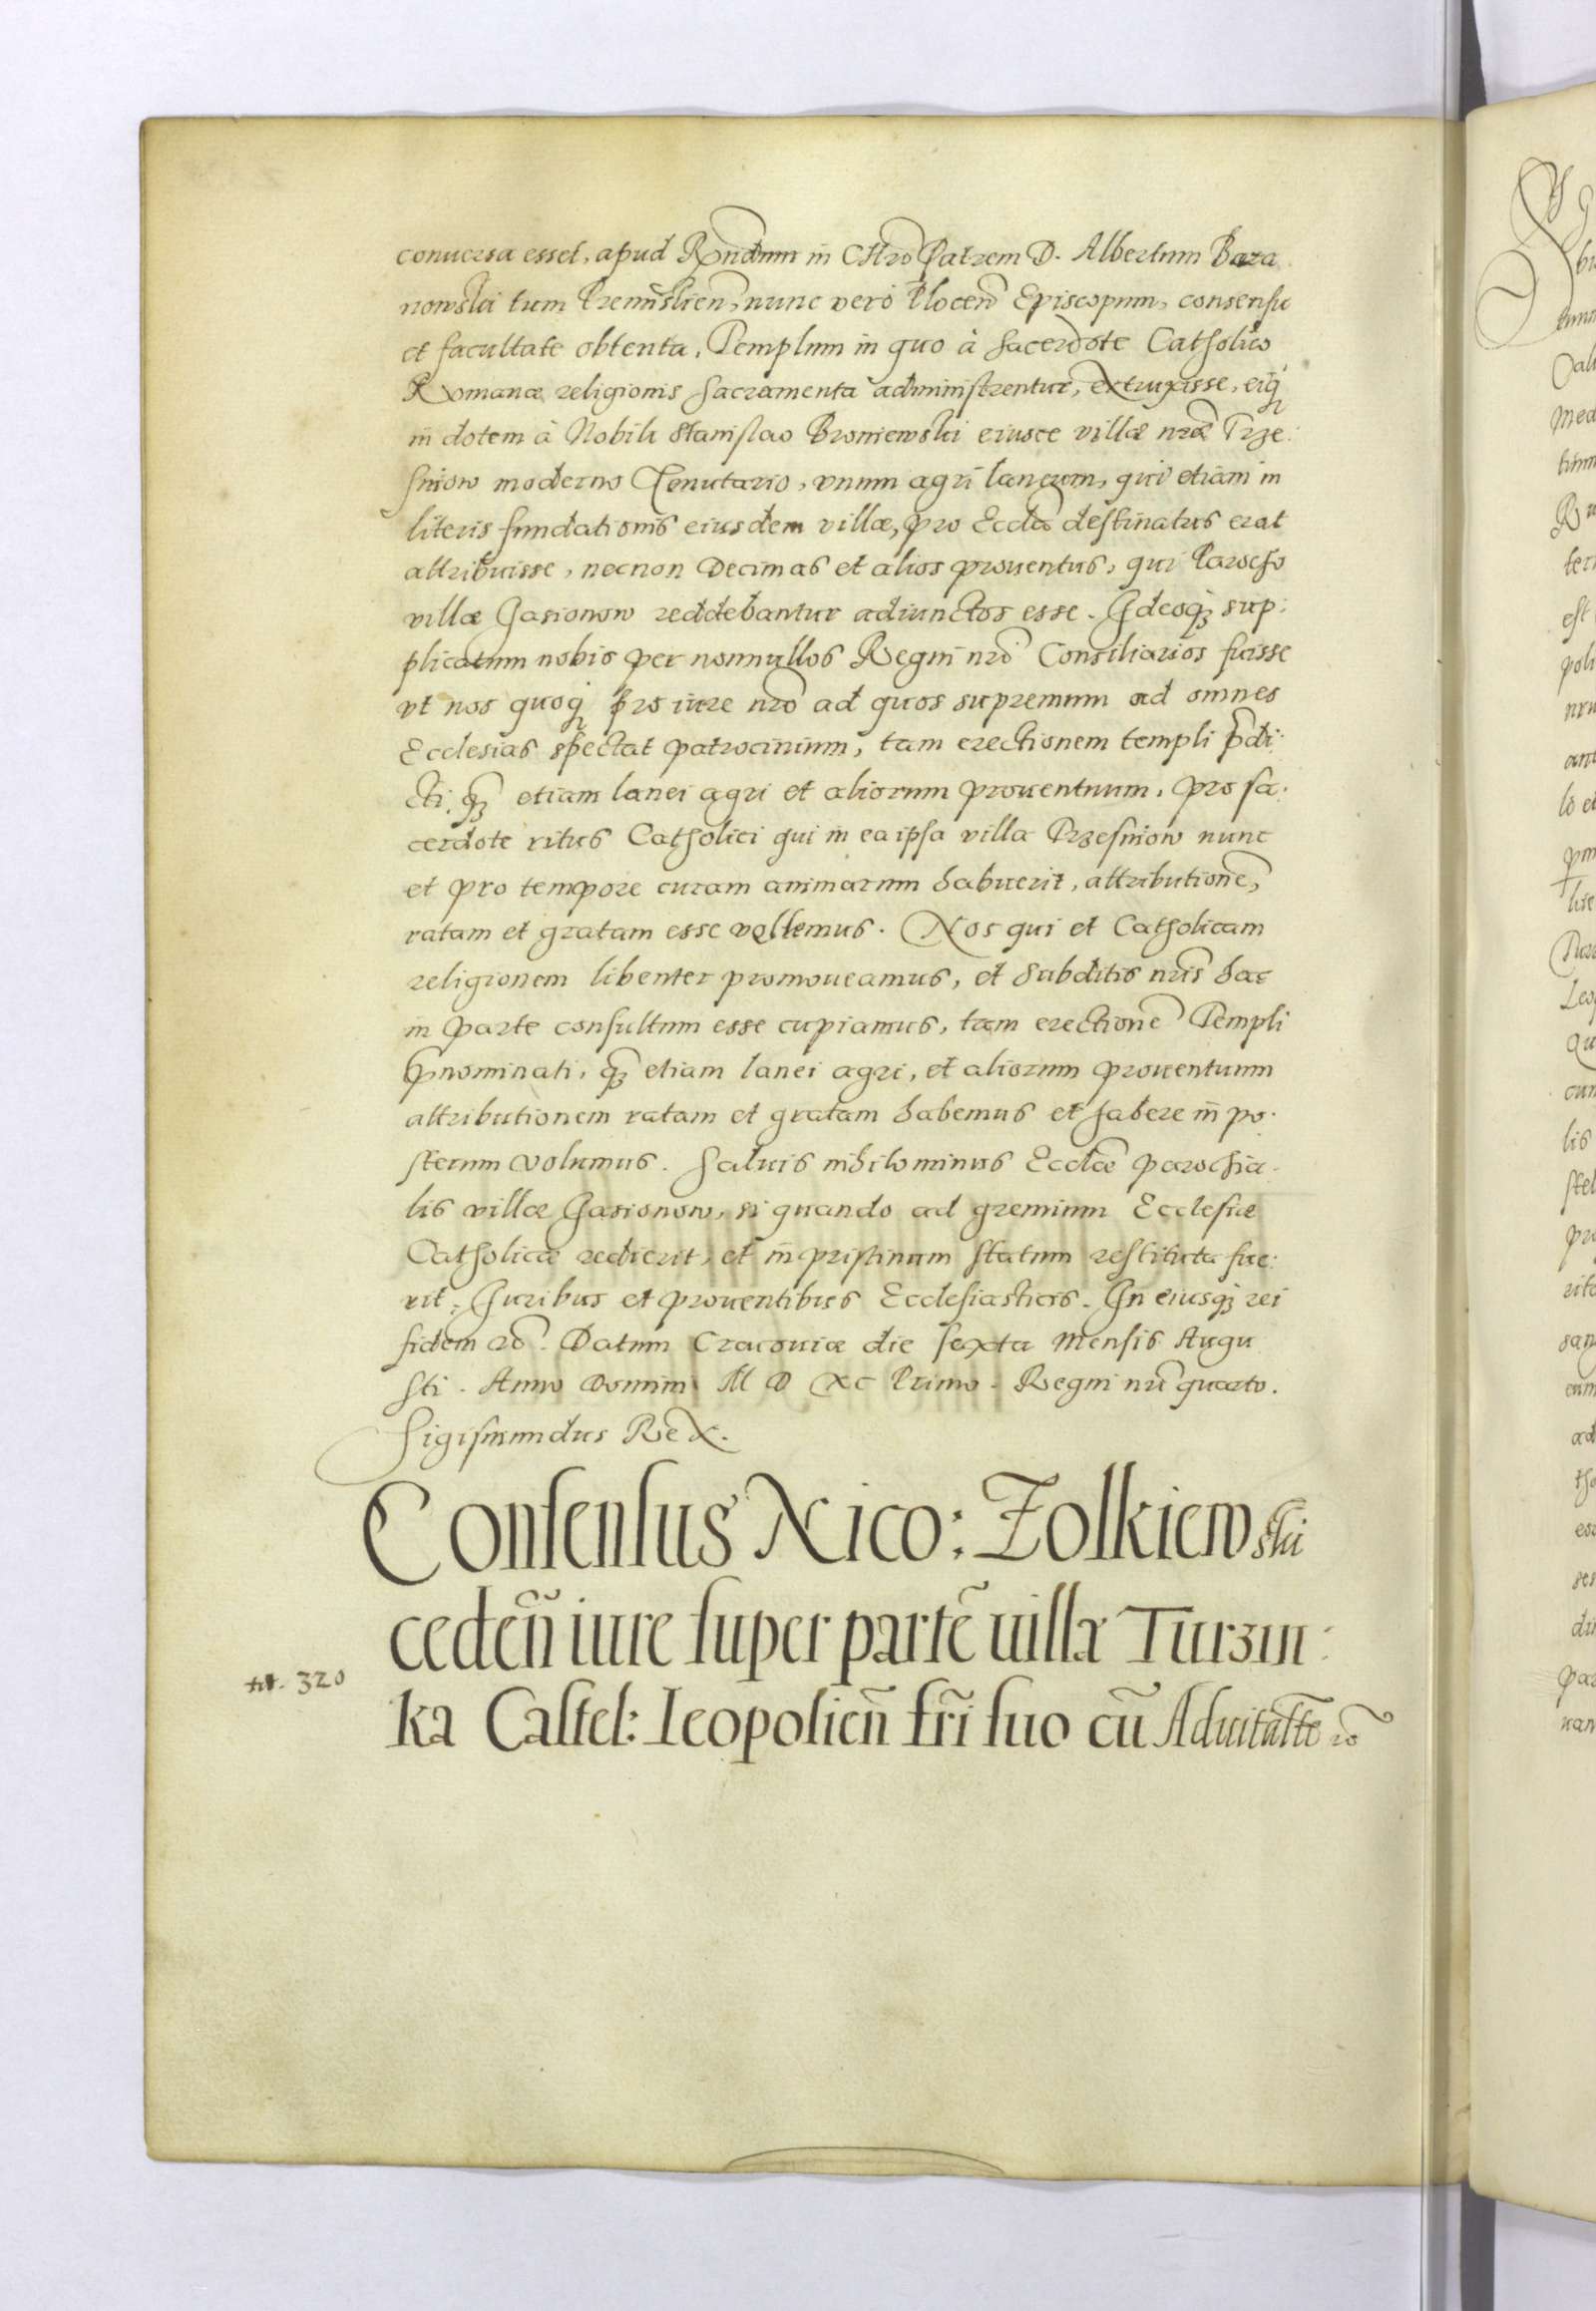 conuersa esset, apud Rndum in Chro Patrem D. Albertum Bara
nowski tum Premislien, nunc vero Plocen Episcopum, consensu
et facultate obtenta, Templum in quo à sacerdote Catholico
Romanæ religionis sacramenta administrentur, extruxisse, eiq
in dotem à Nobili Stanislao Broniewski eiusce villæ nræ Trze:
sniow moderno Tenutario, vnum agri laneum, qui etiam in
literis fundationis eiusdem villæ, pro Eccla destinatus erat
attribuisse, necnon Decimas et alios prouentus, qui Parocho
villæ Jasionow reddebantur adiunctos esse. Ideoq sup:
plicatum nobis per nonnullos Regni nri Consiliarios fuisse
vt nos quoq pro iure nro ad quos supremum ad omnes
Ecclesias spectat patrocinium, tam erectionem templi pdi:
cti, q etiam lanei agri et aliorum prouentuum, pro sa:
cerdote ritus Catholici qui in ea ipsa villa Trzesniow nunc
et pro tempore curam animarum habuerit, attributione,
ratam et gratam esse vellemus. Nos qui et Catholicam
religionem libenter promoueamus, et subditis nris hac
in parte consultum esse cupiamus, tam erectione Templi
pnominati, q etiam lanei agri, et aliorum prouentuum
attributionem ratam et gratam habemus et habere in po:
sterum volumus. Saluis nihilominus Ecclæ parochia:
lis villæ Jasionow, si quando ad gremium Ecclesiæ
Catholicæ redierit, et in pristinum statum restituta fue:
rit, Juribus et prouentibus Ecclesiasticis. In eiusq rei
fidem ro. Datum Cracouiæ die sexta Mensis Augu
sti. Anno Domini M D XC Primo. Regni nri quarto.
Sigismundus Rex.
Consensus Nico: Zolkiewski
cedeñ iure super parte uillæ Turzin:
320
ka Castel: Leopolień fri suo cũ Aduitalte ro